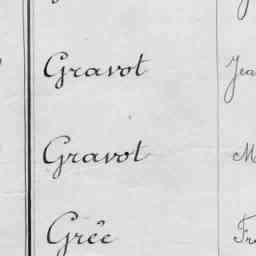 Gravot Jea
Gravot M
Grêe Fr